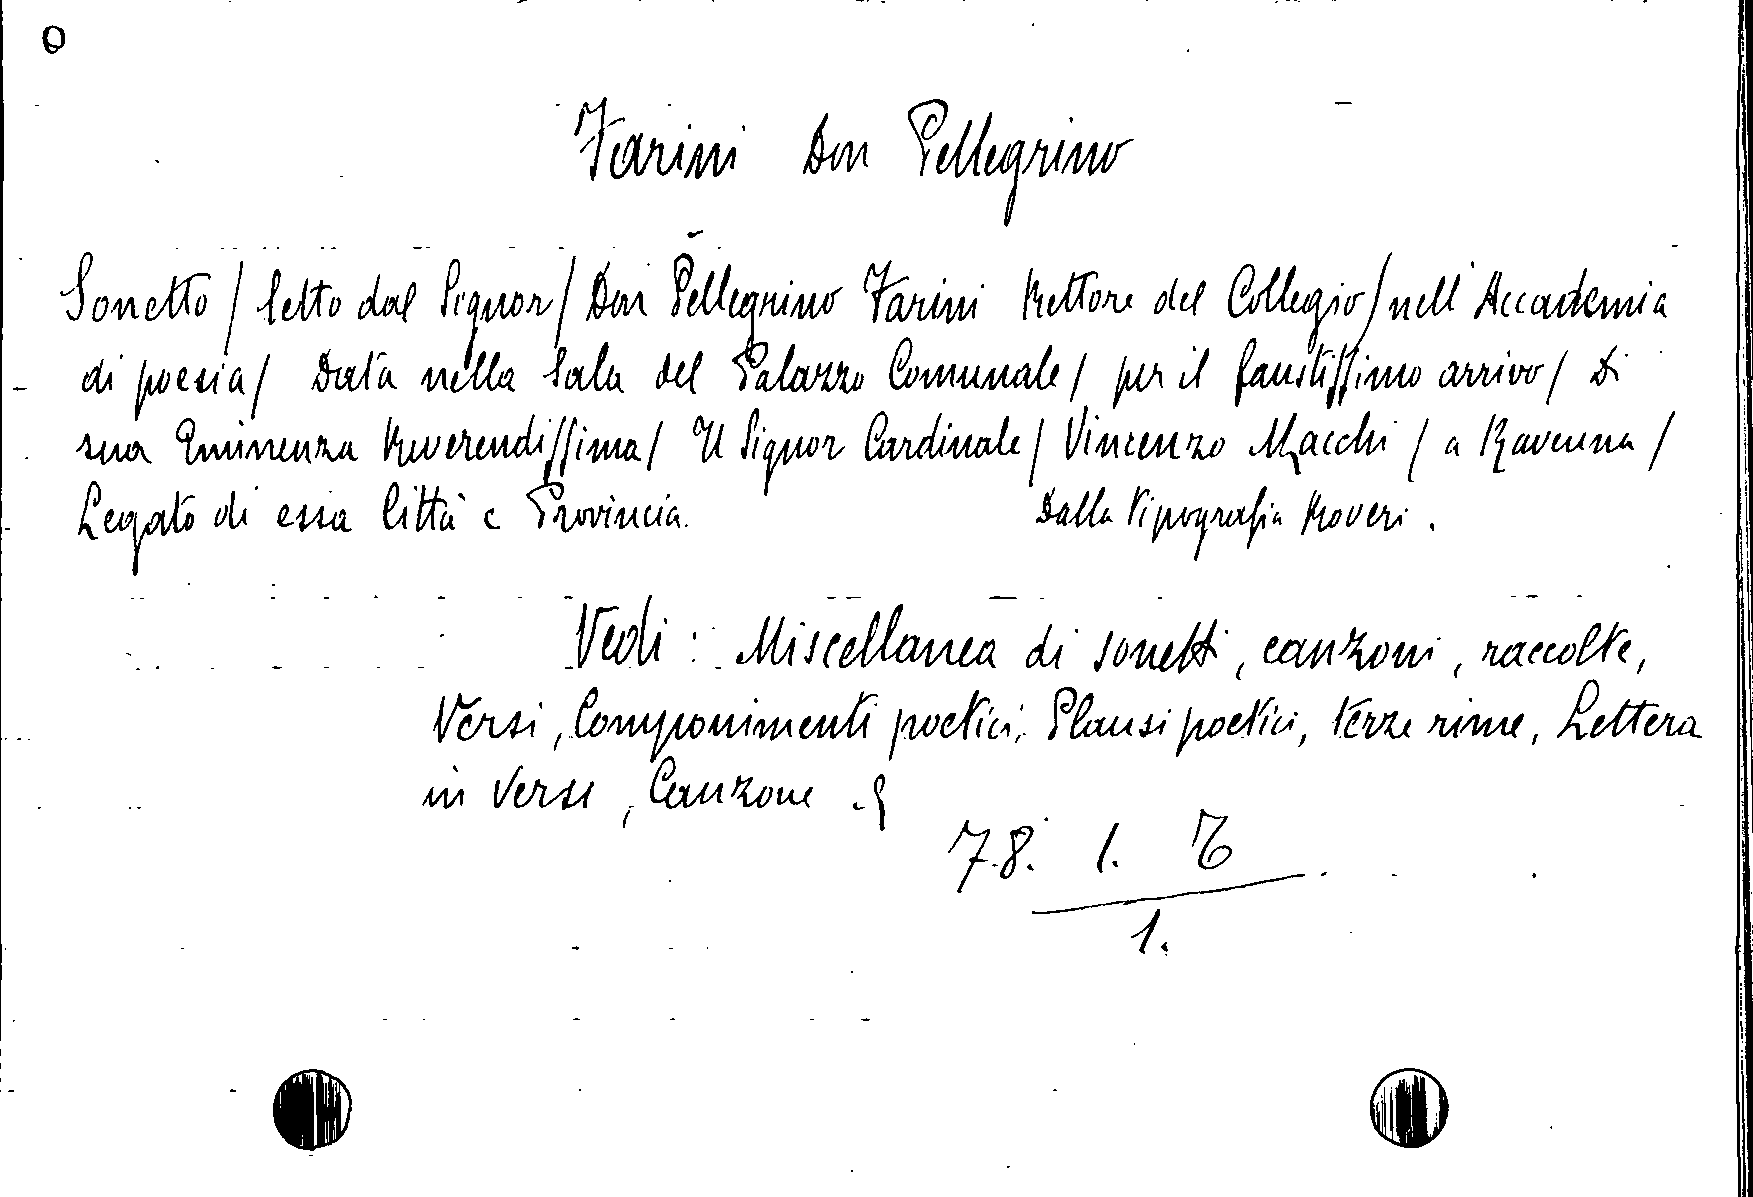 O
Farini Don Pellegrino
Sonetto / letto dal Signor / Don Pellegrino Farini Rettore del Collegio / nell'Accademia
di poesia / Data nella Sala del Palazzo Comunale / per il faustissimo arrivo / Di
sua Eminenza Reverendissima / Il Signor Cardinale / Vincenzo Macchi / a Ravenna /
Legato di essa Città e Provincia. Dalla Tipografia Roveri.
Vedi: Miscellanea di sonetti, canzoni, raccolte,
Versi, Componimenti poetici, Plausi poetici, terze rime, Lettera
in versi, Canzone.
78. 1. 6
1.